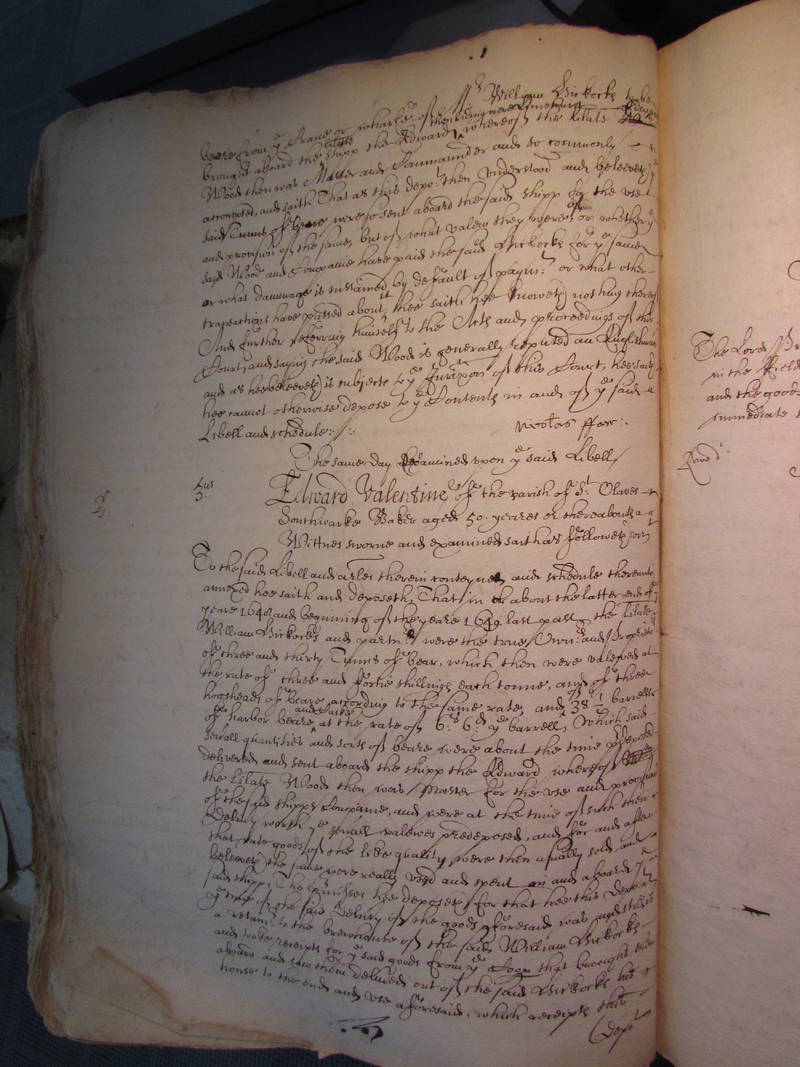 William Hickocks to be
beere from ye Crane or wharfe of
brought aboard the shipp the Edward whereof the
Wood then was Master and Commaunder and so commonly
accompted, and saith That as this depot then understood and beleeveth ye
said Tunns of beere were so sent aboard the said shipp for the use
and provision of the same, but of what valew they were, or whether ye
said Wood and Companie have paid the said Hickocks for ye same
or what dammage is sustained by default of paymt or what other
transactions have passed about it hee saith hee knoweth nothing thereof
And further referring himself to the Acts and proceedings of this
Court, and saying the said Wood is generally reputed an Englishman
and as hee beleeveth is subject to ye Jurisdicon of this Court, hee saith
hee cannot otherwise depose to ye Contents in and of ye said
Libell and schedule :/:
The same day Examined upon ye said Libell
3
Edward Valentine of the parish of St Olaves
Southwarke Baker aged 50 yeares or thereabouts a
Wittnes sworne and examined saith as followeth
To the said Libell and arles therein conteyned and schedule thereunto
annexed hee saith and deposeth, That in or about the latter end of ye
yeare 1648 and beginning of the yeare 1649 last past the
William Hickocks and partnrs were the true Owners and
of three and thirty Tunns of bear, which then were valewed at
the rate of three and fortie shillings each tonne, and of three
hogsheads of beare according to the same rate, and of 38 barrells
of harbor beare at the rate of 6s 6d ye barrell, Which said
severall quantities and sorts of beare were about the time predeposed
delivered and sent aboard the shipp the Edward whereof
the Wood then was Master for the use and provision
of the said shipps Companie, and were at the time of such their
Delivry worth ye severall valewes predeposed, and for and after
that rate goods of the like quality were then usually sold, and
beleeveth the same were really used and spent in and aboard ye
said shipp, The premisses hee deposeth for that hee this Depot
ye tyme of the said Delivry of the goods aforesaid was
a to the brewhouse of the said William Hickocks
and tooke receipts for ye said goods from ye that brought the
aboard and saw them delivered out of the said Hickocks his
house to the ends and use aforesaid, which receipts this
Depot
The Lord
in the
and the goods
immediate